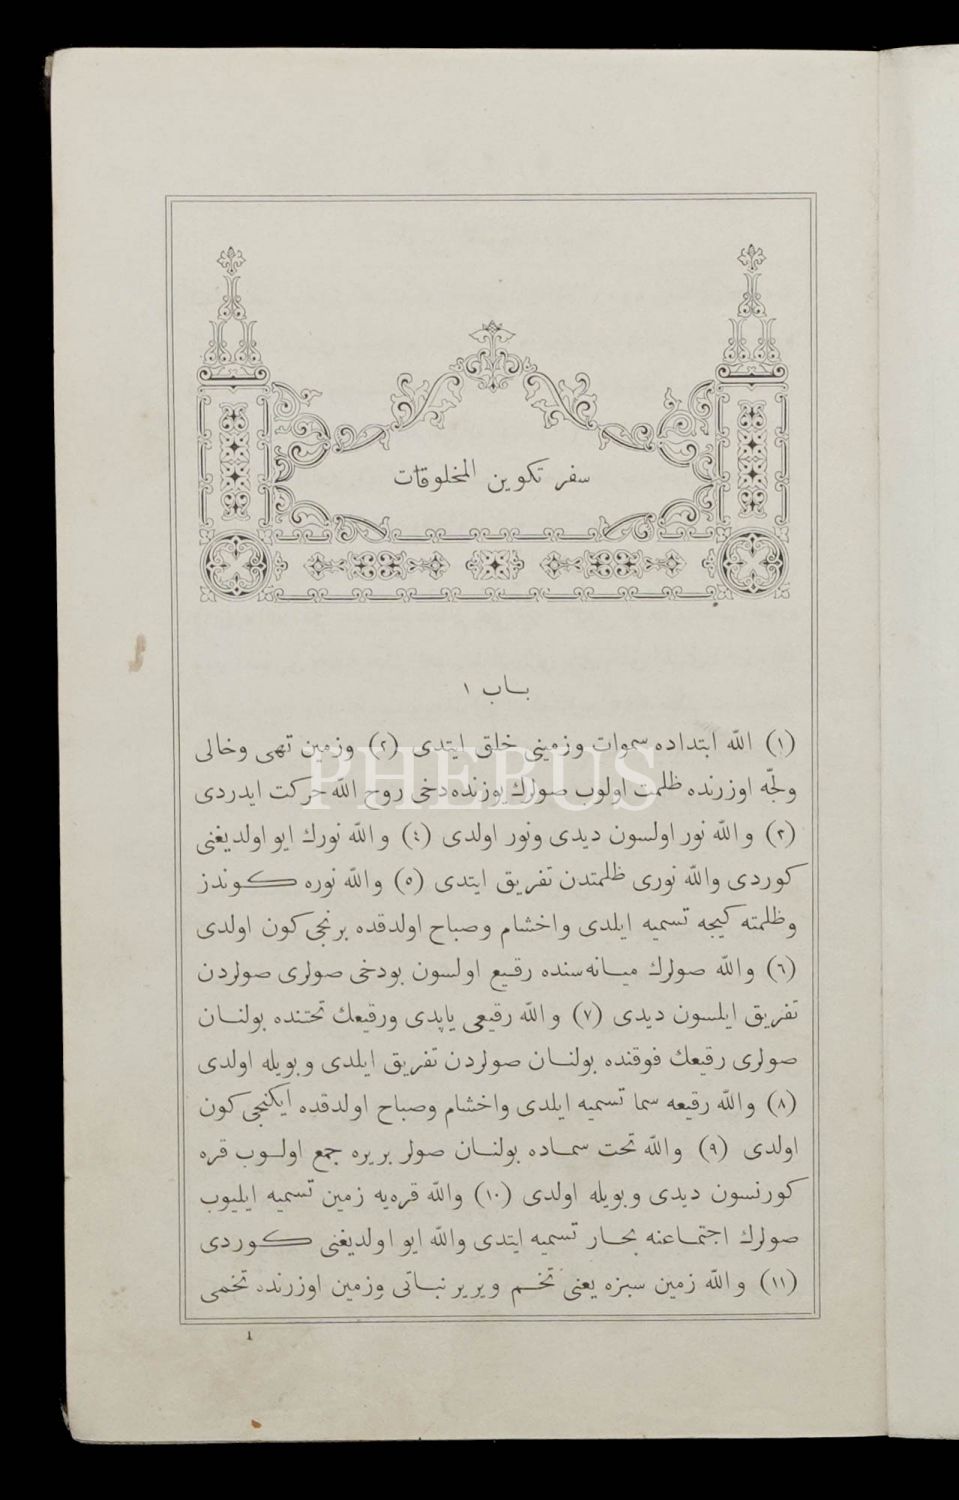 سفر تكوين المخلوقات
بـاب ١
(١) الله ابتداده سموات وزمينى خلق ايتدى (٢) وزمين تهى وخالى
ولجّه اوزرنده ظلمت اولوب صولرك يوزنده دخى روح الله حركت ايدردى
(٣) والله نور اولسون ديدى ونور اولدى (٤) والله نورك ايو اولديغنى
كوردى والله نورى ظلمتدن تفريق ايتدى (٥) والله نوره كـوندز
وظلمته كيجه تسميه ايلدى واخشام وصباح اولدقده برنجى كون اولدى
(٦) والله صولرك ميـانه‌سنده رقـيع اولسون بودخى صولرى صولردن
تفريق ايلسون ديدى (٧) والله رقيعى ياپدى ورقيعك تحتنده بولنـان
صولرى رقيعك فوقنده بولنـان صولردن تفريق ايلدى وبويله اولدى
(٨) والله رقيعه سما تسميه ايلدى واخشام وصباح اولدقده ايكنجى كون
اولدى (٩) والله تحت سمـاده بولنـان صولر بريره جمع اولـوب قره
كورنسون ديدى وبويله اولدى (١٠) والله قره‌يه زمين تسميه ايليوب
صولرك اجتمـاعنه بحـار تسميه ايتدى والله ايو اولديغنى كـوردى
(١١) والله زمين سبزه يعنى تخـم ويرير نبـاتى وزمين اوزرنده تخمى
١
PHEBUS